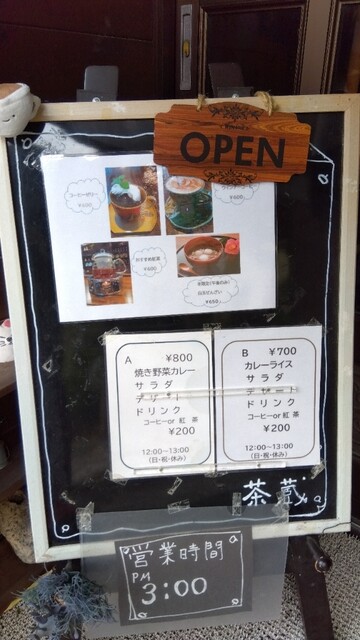 OPEN
コーヒーゼリー
¥650
おすすめ紅茶
¥600
¥650
A ¥800
焼き野菜カレー
サラダ
デザート
ドリンク
コーヒーor 紅茶
¥200
12:00~13:00
(日・祝・休み)
B ¥700
カレーライス
サラダ
デザート
ドリンク
コーヒーor 紅茶
¥200
12:00~13:00
(日・祝・休み)
茶蔵
営業時間
PM
3:00